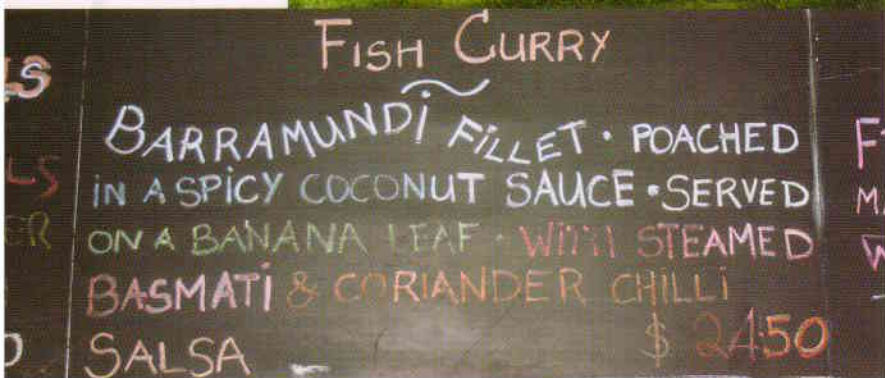 FISH CURRY
BARRAMUNDI FILLET · POACHED
IN A SPICY COCONUT SAUCE · SERVED
ON A BANANA LEAF · WITH STEAMED
BASMATI & CORIANDER CHILLI
SALSA $ 24.50